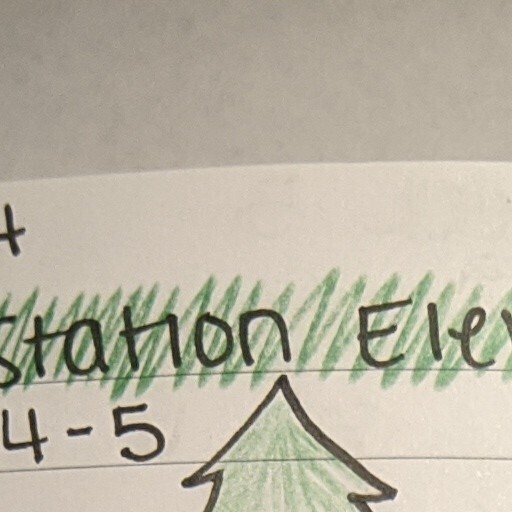 station Ele
4-5